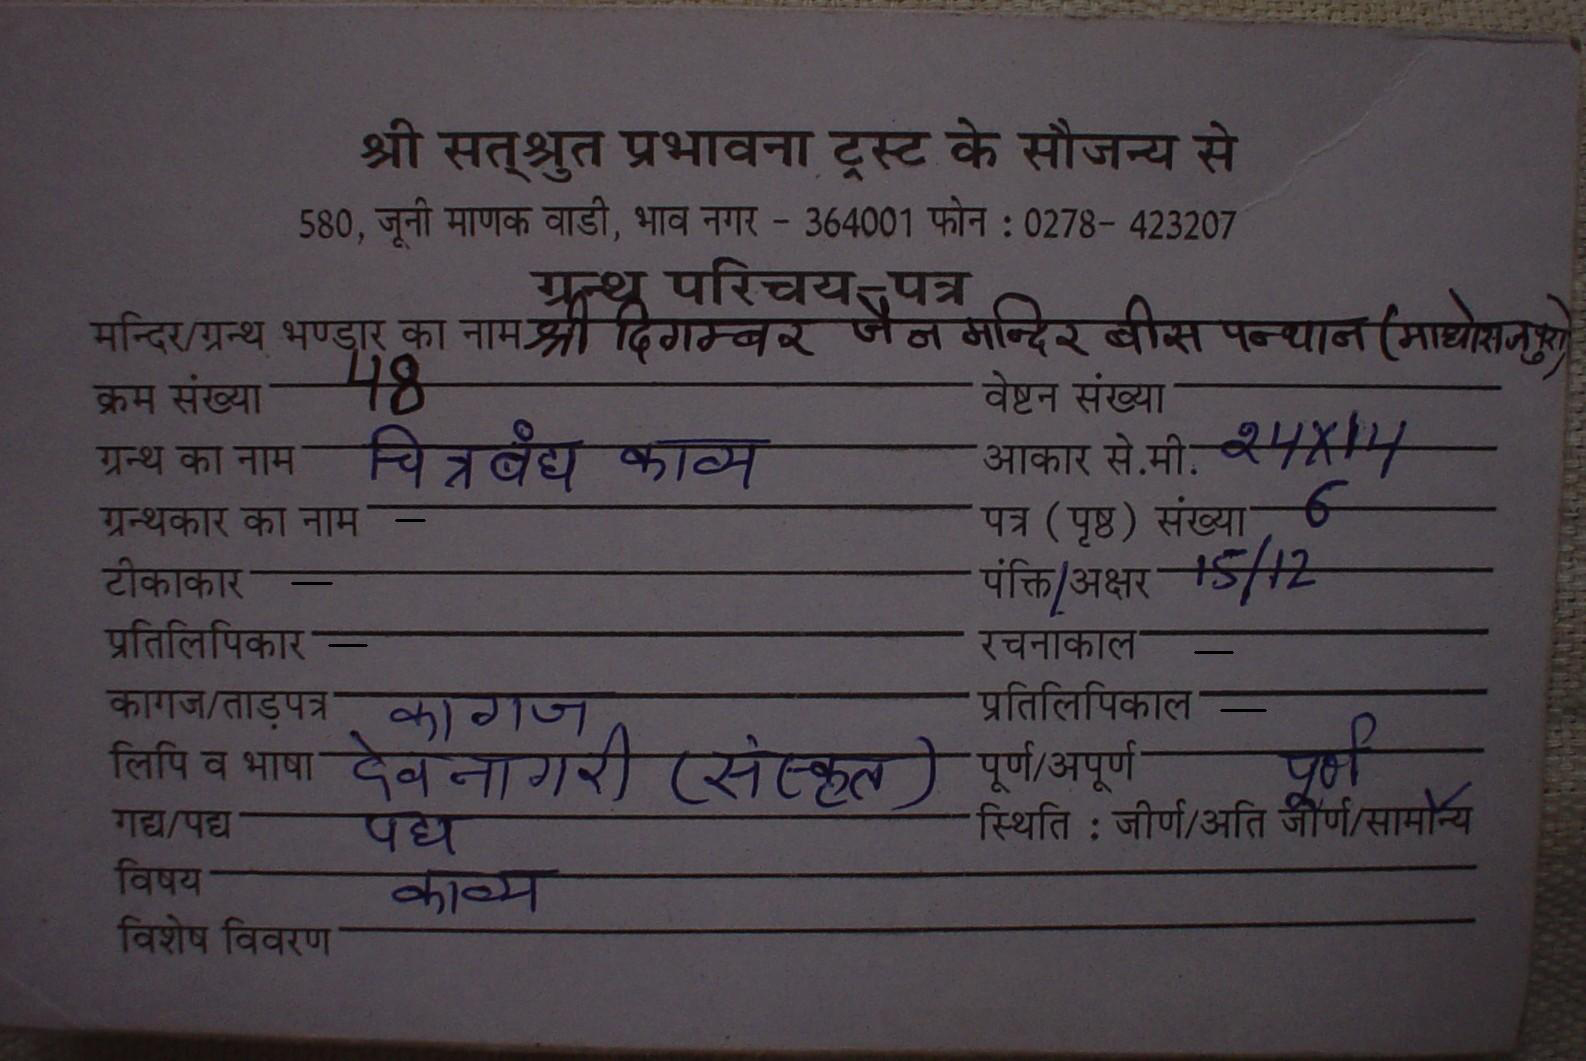 श्री सत्श्रुत प्रभावना ट्रस्ट के सौजन्य से
580, जूनी माणक वाडी, भाव नगर - 364001 फोन : 0278- 423207
ग्रन्थ परिचय-पत्र
मन्दिर/ग्रन्थ भण्डार का नाम श्री दिगम्बर जैन मन्दिर बीस पन्थान (माधोराजपुरा)
क्रम संख्या 48 वेष्टन संख्या
ग्रन्थ का नाम चित्रबंध काव्य आकार से.मी. 24X14
ग्रन्थकार का नाम — पत्र (पृष्ठ) संख्या 6
टीकाकार — पंक्ति/अक्षर 15/12
प्रतिलिपिकार — रचनाकाल —
कागज/ताड़पत्र कागज प्रतिलिपिकाल —
लिपि व भाषा देवनागरी (संस्कृत) पूर्ण/अपूर्ण पूर्ण
गद्य/पद्य पद्य स्थिति : जीर्ण/अति जीर्ण/सामान्य
विषय काव्य
विशेष विवरण